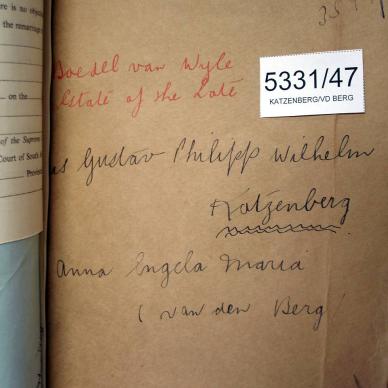 ere is no objectio
the remarriag
on the
of the Supreme
Court of South A
Provinci
35
Boedel van Wyle
Estate of the Late
5331/47
KATZENBERG/VD BERG
as Gustav Philipp Wilhelm
Katzenberg
Anna Engela Maria
( van den Berg